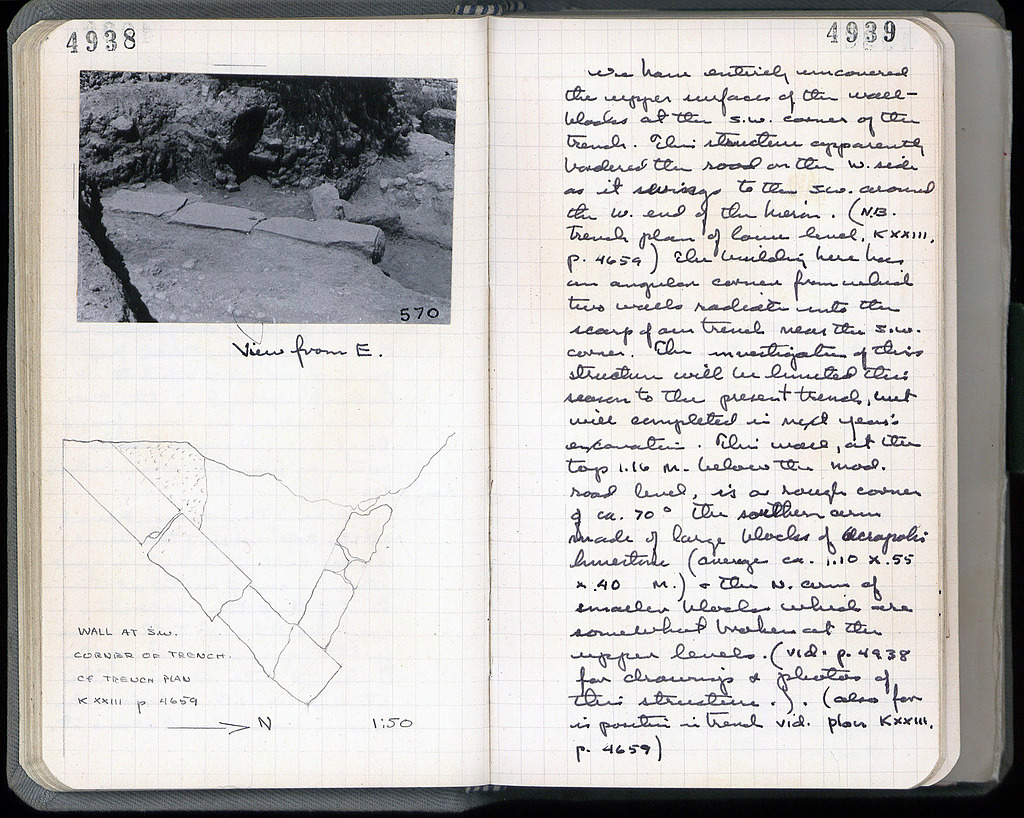 4938
570
View from E.
WALL AT S.W.
CORNER OF TRENCH.
CF TRENCH PLAN
K XXIII p 4659
N
1:50
4939
We have entirely uncovered
the upper surfaces of the wall-
blocks at the s.w. corner of the
trench. This structure apparently
bordered the road on the w. side
as it swings to the s.w. around
the w. end of the heron. (N.B.
trench plan of lower level, K XXIII,
p. 4659) The building here has
an angular corner from which
two walls radiate into the
scarp of our trench near the s.w.
corner. The investigation of this
structure will be limited this
season to the present trench, but
will completed in next year's
excavation. This wall, at the
top 1.16 M. below the mod.
road level, is a rough corner
of ca. 70° the southern arm
made of large blocks of Acropolis
limestone (average ca. 1.10 x .55
x .40 M.) & the N. arm of
smaller blocks which are
somewhat broken at the
upper levels. (vid. p. 4938
for drawings & photos of
this structure.). (also for
is position in trench vid. plan K XXIII,
p. 4659)